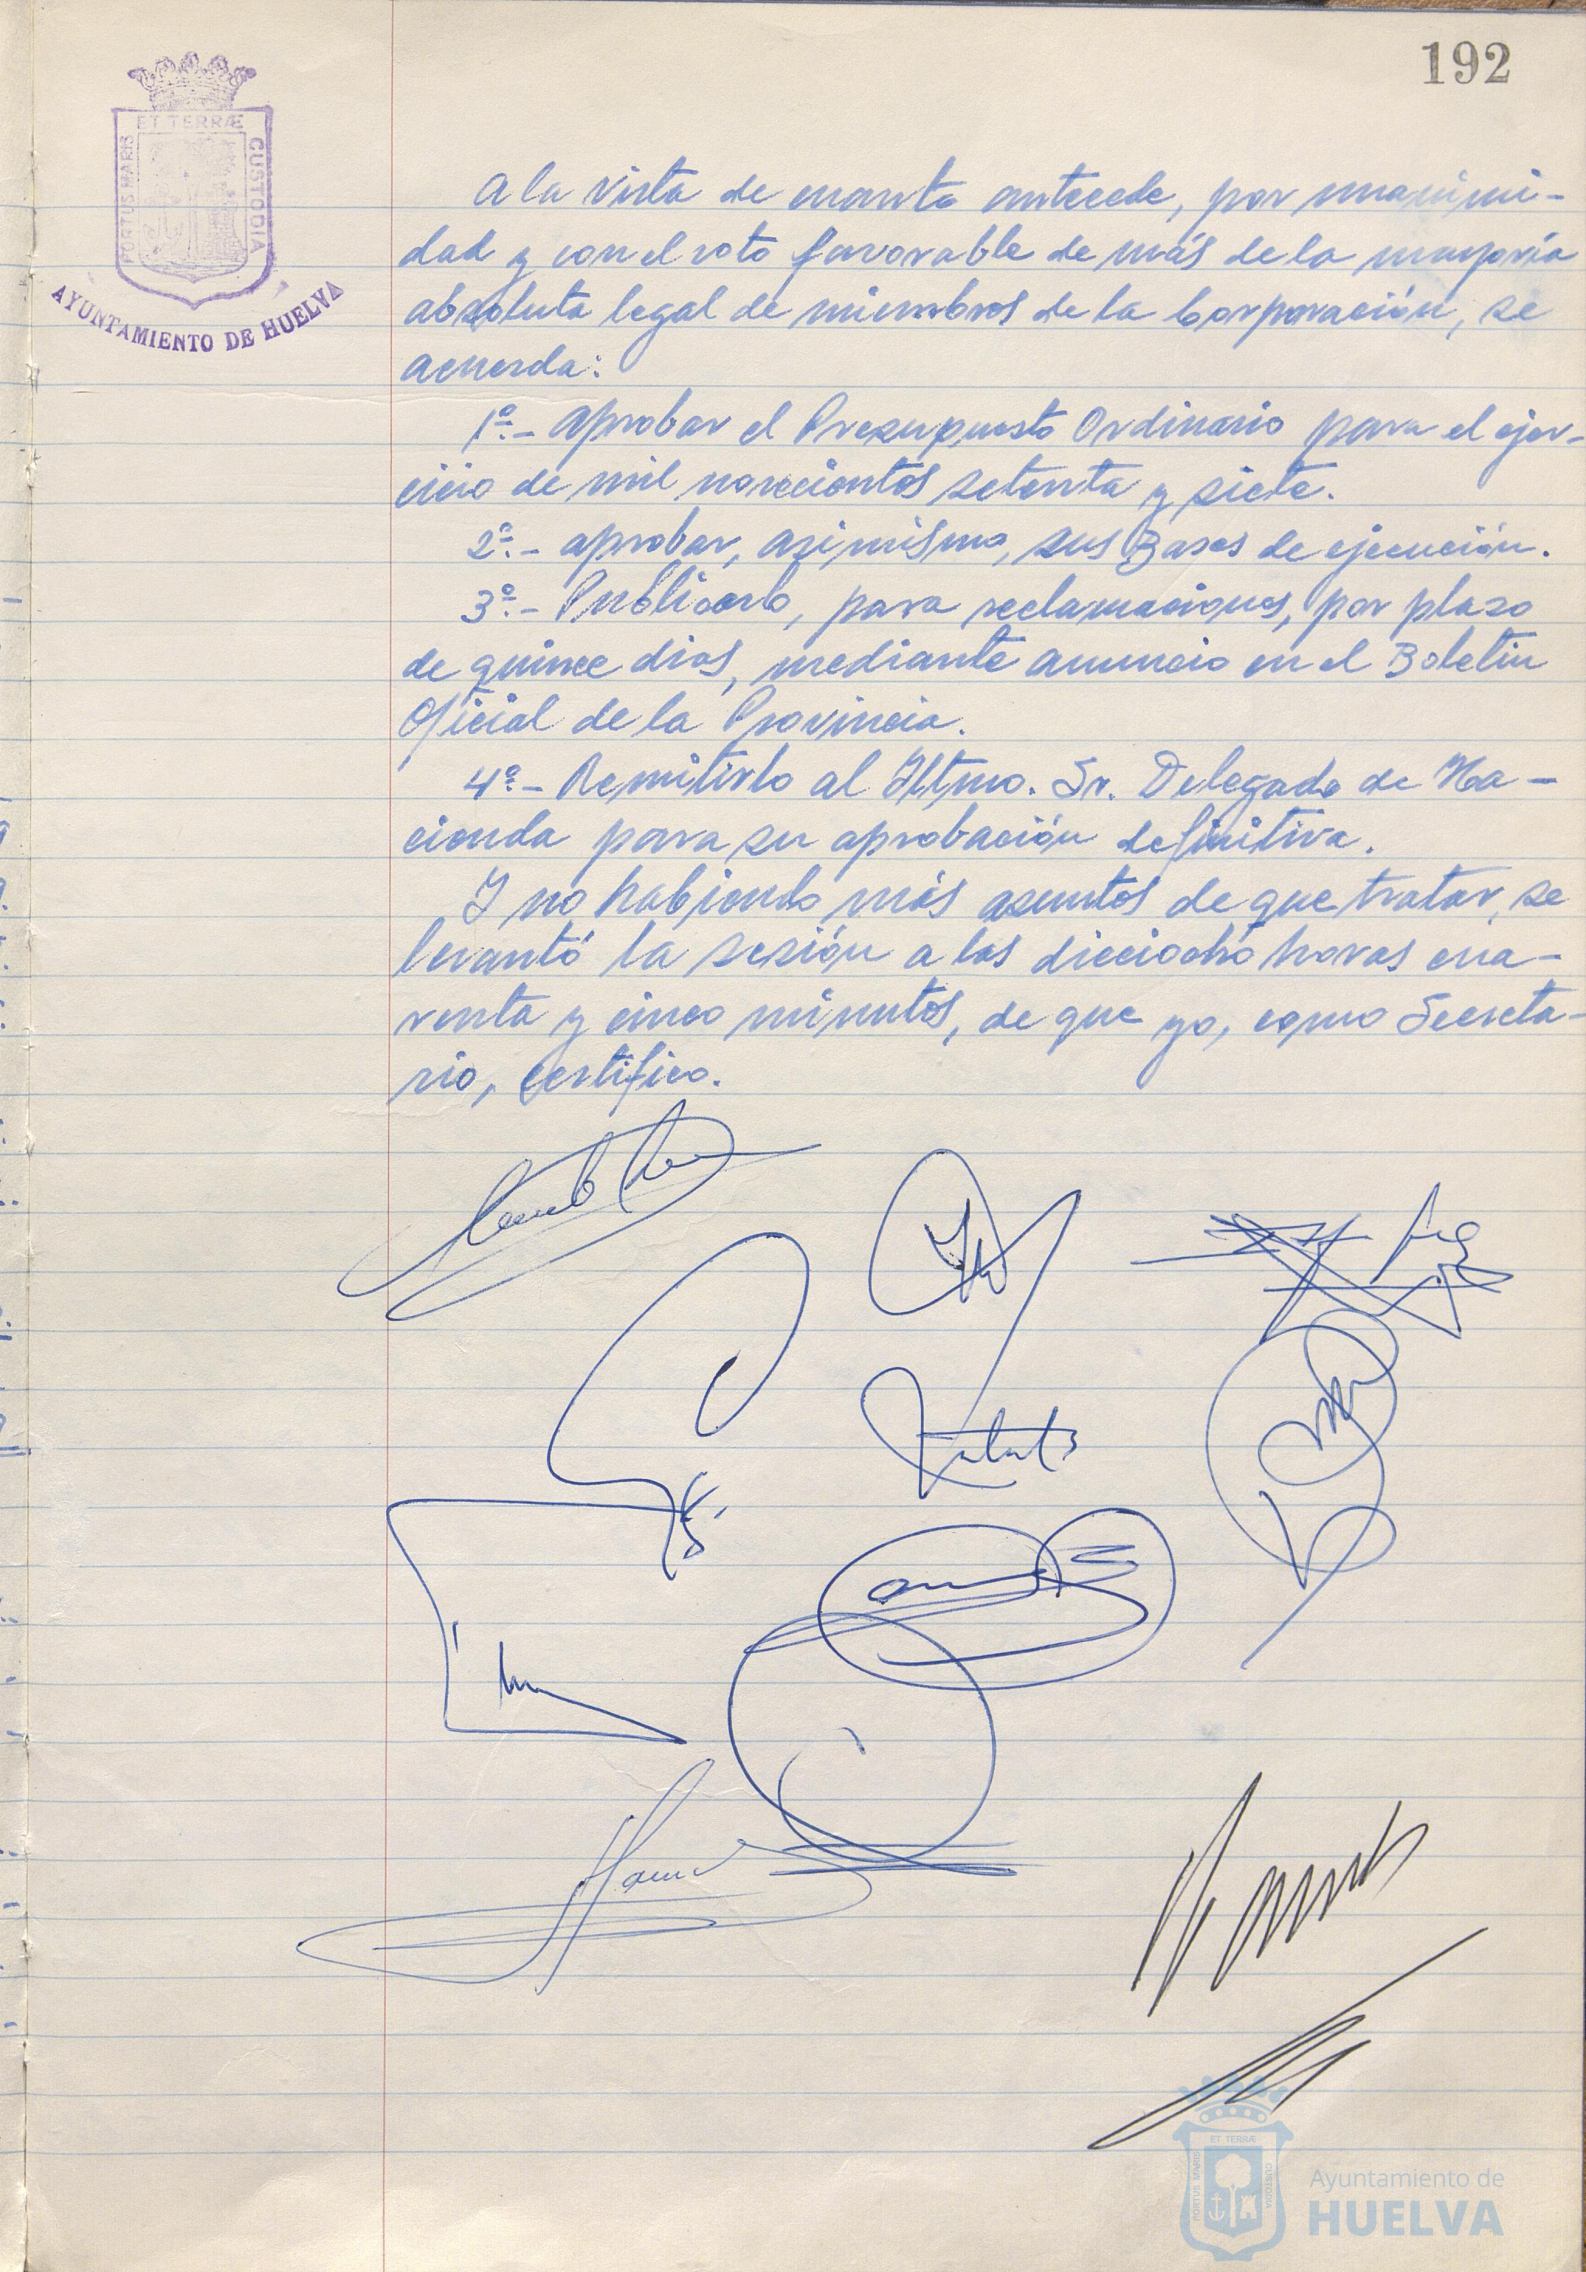 192
ET TERRÆ
PORTUS MARIS
CUSTODIA
AYUNTAMIENTO DE HUELVA
A la vista de cuanto antecede, por unanimi-
dad y con el voto favorable de más de la mayoría
absoluta legal de miembros de la Corporación, se
acuerda:
1º.- Aprobar el Presupuesto Ordinario para el ejer-
cicio de mil novecientos setenta y siete.
2º.- Aprobar, asimismo, sus Bases de ejecución.
3º.- Publicarlo, para reclamaciones, por plazo
de quince dias, mediante anuncio en el Boletin
Oficial de la Provincia.
4º.- Remitirlo al Iltmo. Sr. Delegado de Ha-
cienda para su aprobación definitiva.
Y no habiendo más asuntos de que tratar, se
levantó la sesión a las dieciocho horas cua-
renta y cinco minutos, de que yo, como Secreta-
rio, certifico.
ET TERRÆ
PORTUS MARIS
CUSTODIA
Ayuntamiento de
HUELVA